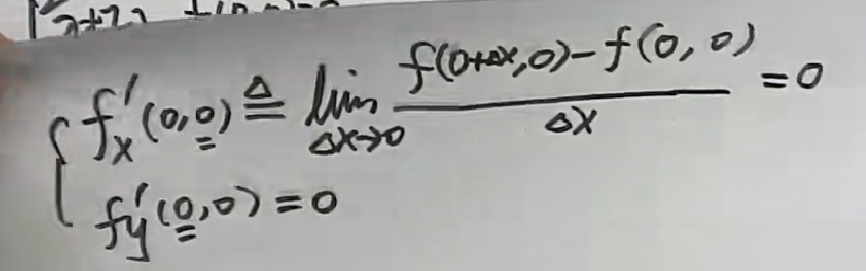 f'ₓ(0,0) ≜ lim_{Δx→0} \frac{f(0+Δx,0)-f(0,0)}{Δx} = 0
f'y(0,0) = 0